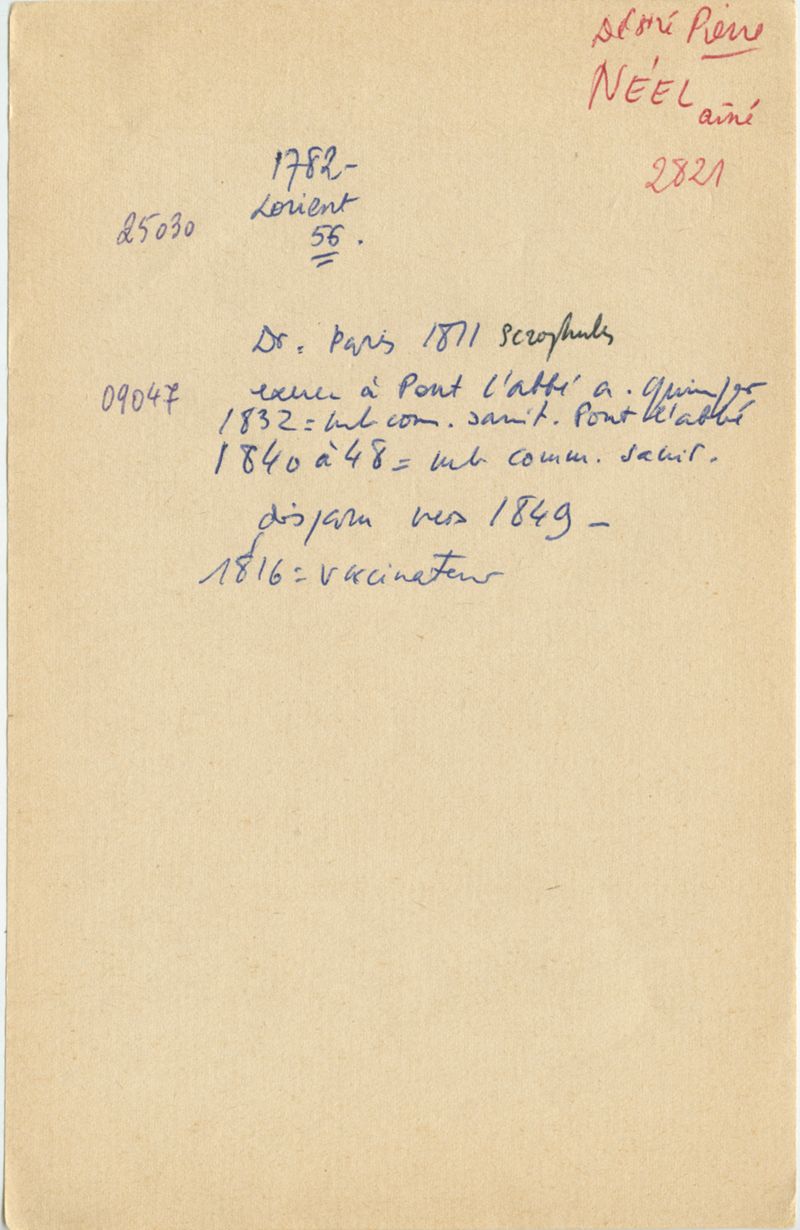 Désiré Pierre
NÉEL
aîné
2821
1782-
Lorient
25030
56.
Dr. Paris 1811 scrophules
09047
exerce à Pont l'abbé a. Quimper
1832 = mb com. sanit. Pont l'abbé
1840 à 48 = mb comm. sanit.
disparu vers 1849 -
1816 = vaccinateur